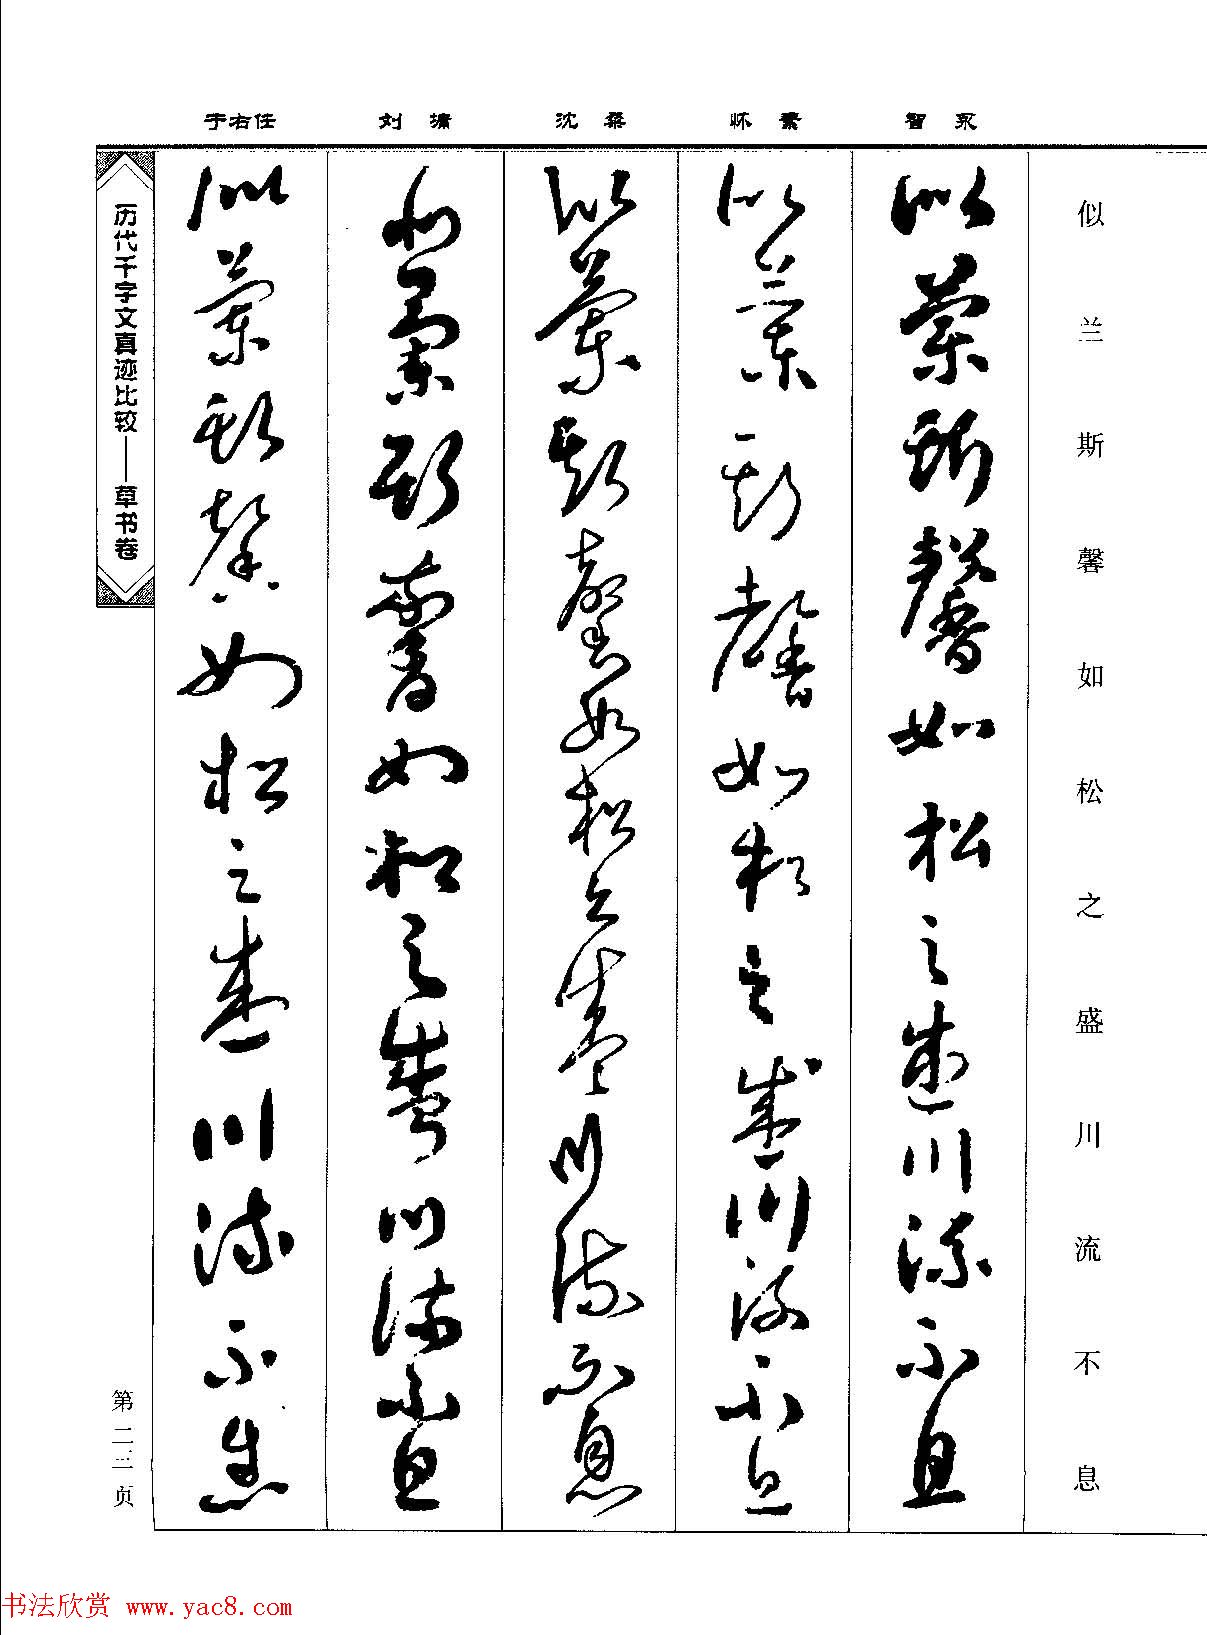 于右任 刘墉 沈粲 怀素 智永
似兰斯馨如松之盛川流不息
似兰斯馨如松之盛川流不息
似兰斯馨如松之盛川流不息
似兰斯馨如松之盛川流不息
似兰斯馨如松之盛川流不息
似兰斯馨如松之盛川流不息
历代千字文真迹比较——草书卷
第二三页
书法欣赏 www.yac8.com